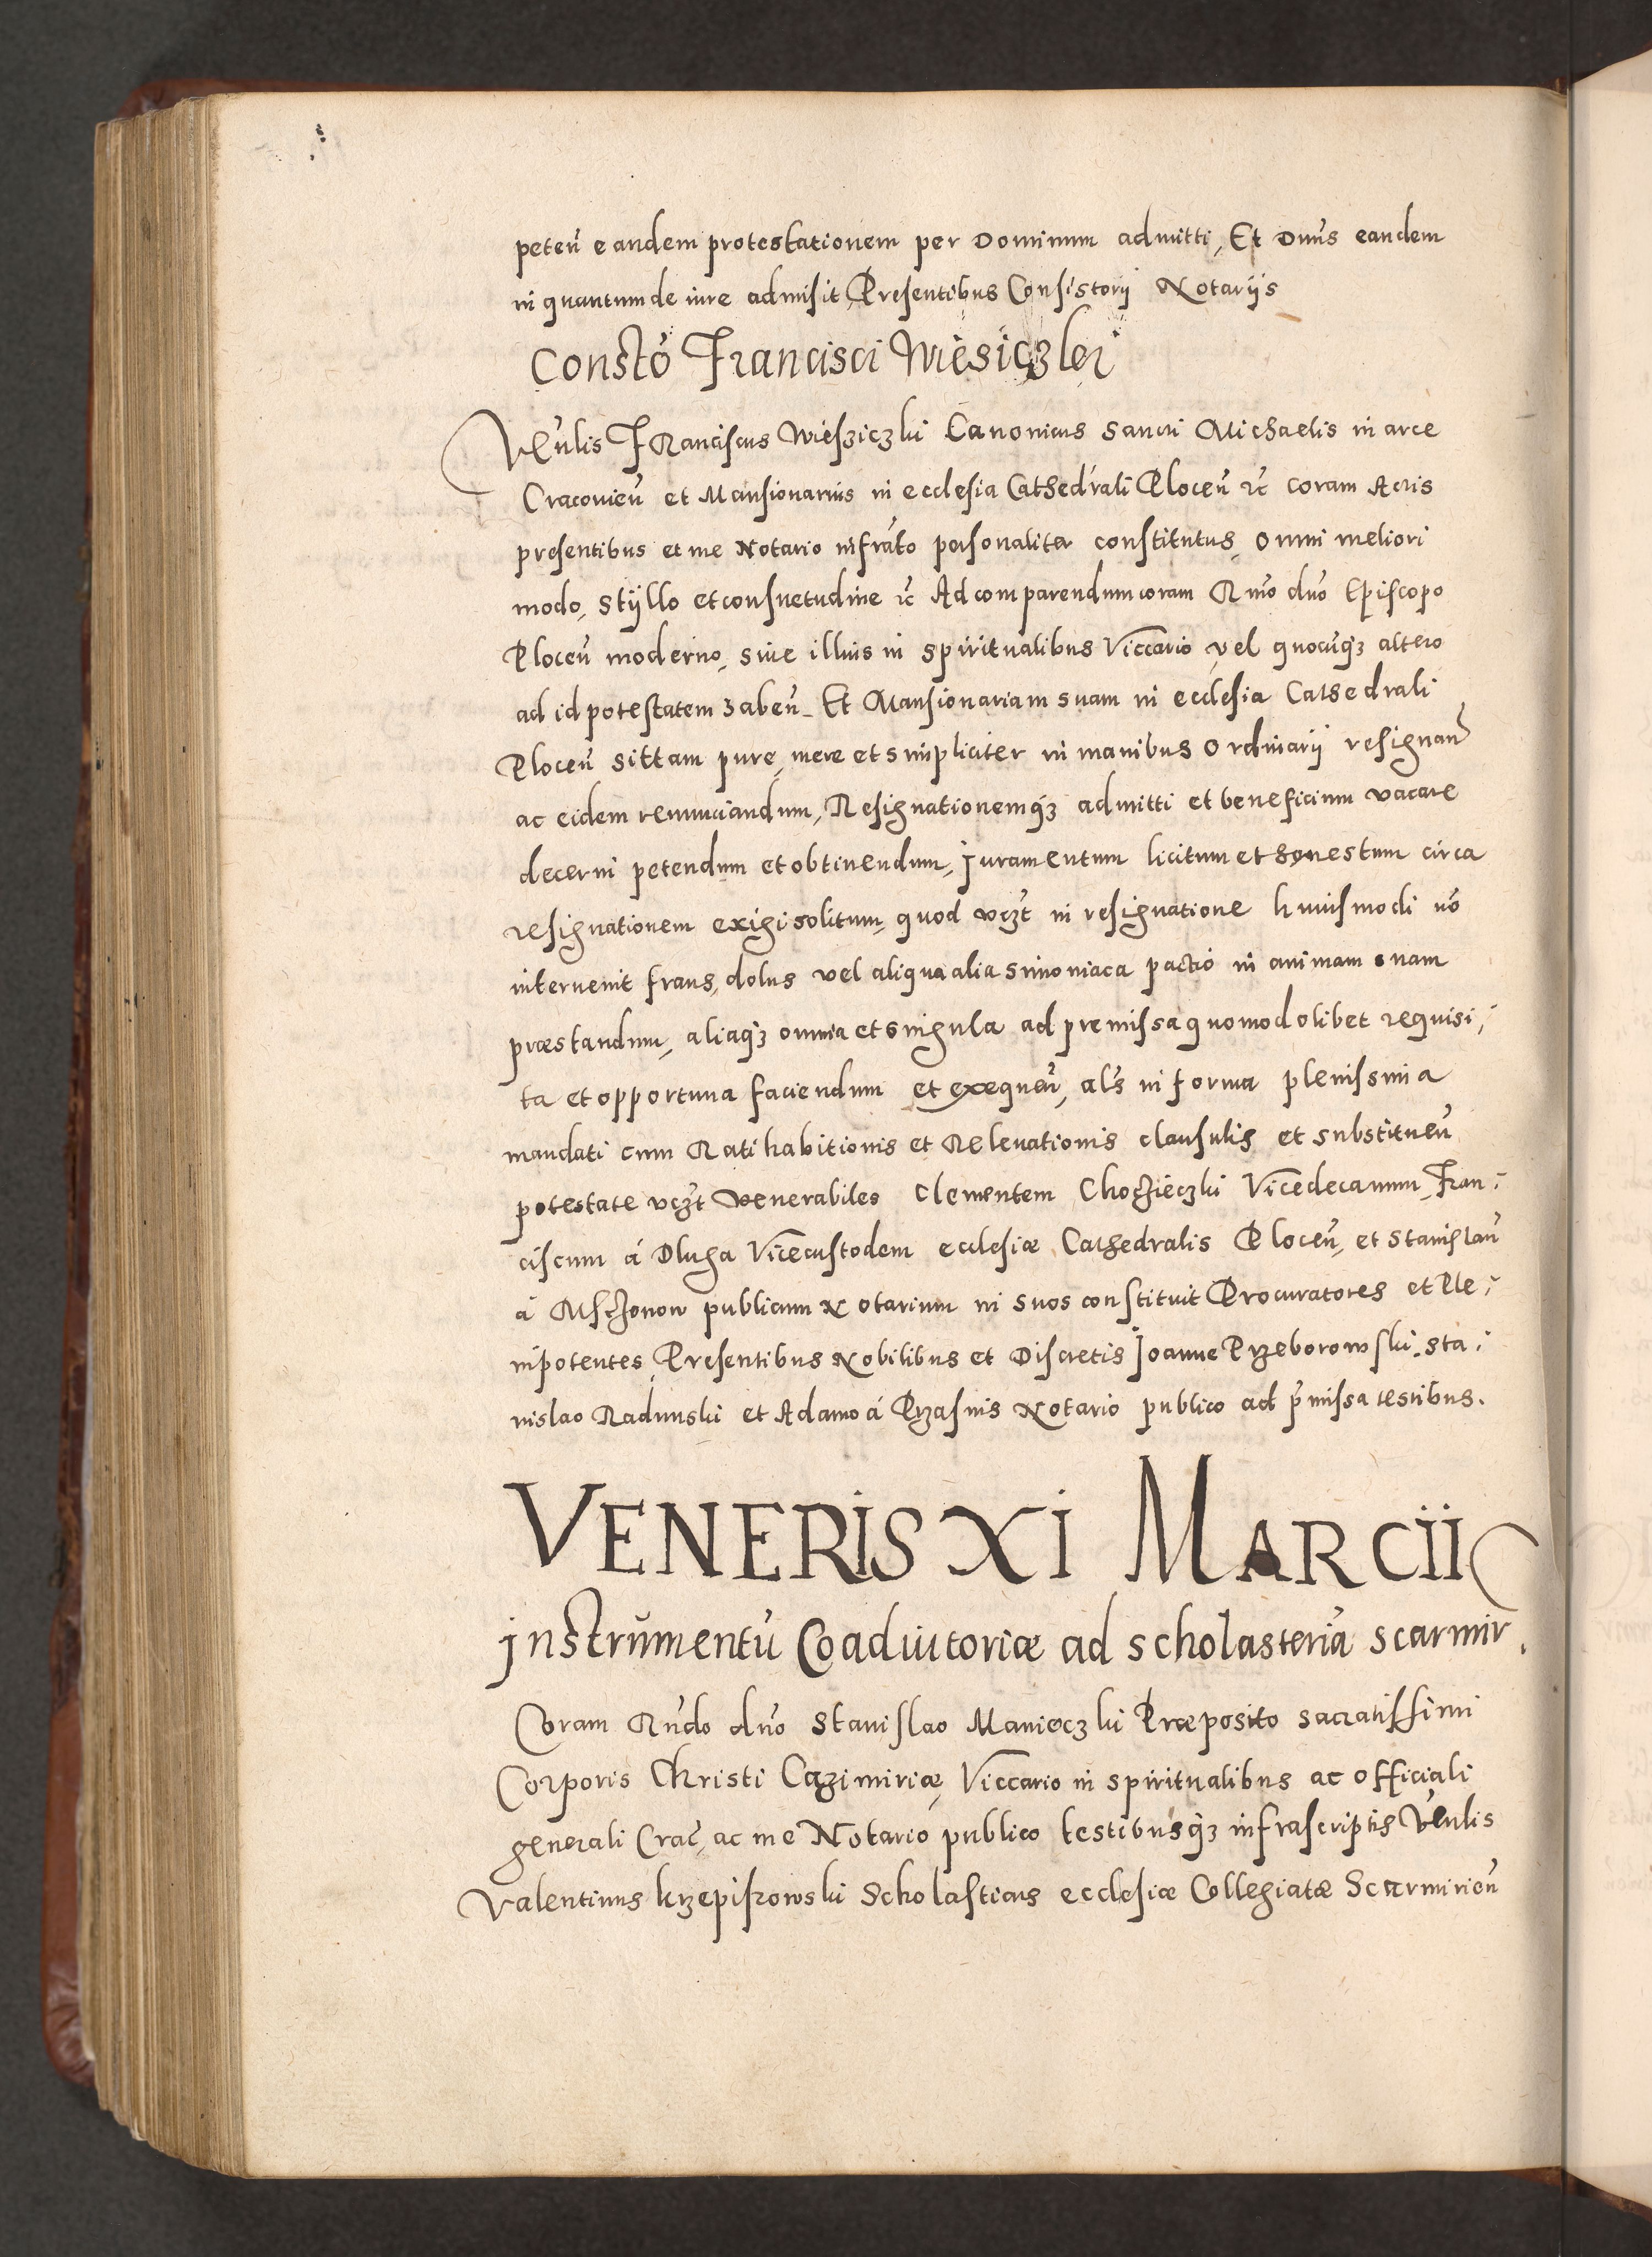 peteñ eandem protestationem per Dominum admitti, Et Dnus eandem
in quantum de iure admisit Presentibus Consistorij Notariis
Constō Francisci Wiesiczkı
Veñlis Franciscus Wiesziczki Canonicus Sancti Michaelis in arce
Cracovieñ et Mansionarius in ecclesia Cathedrali Ploceñ &c coram Actis
presentibus et me Notario infrato personaliter constitutus, omni meliori
modo, styllo et consuetudine &c Ad comparendum coram Rmo dno Episcopo
Ploceñ moderno, sive illius in spiritualibus Viccario vel quocumqȝ altero
ad id potestatem habeñ Et Mansionariam suam in ecclesia Cathedrali
Ploceñ sittam pure, mere et simpliciter in manibus Ordinarij resignan̄
ac eidem renunciandum, Resignationemqȝ admitti et beneficium vacare
decerni petendum et obtinendum, Juramentum licitum et honestum circa
resignationem exigi solitum, quod vczt in resignatione huiusmodi nō
intervenit fraus, dolus vel aliqua alia simoniaca pactio in animam suam
præstandum, aliaqȝ omnia et singula ad premissa quomodolibet requisi,
ta et opportuna faciendum et exequeñ, als in forma plenissima
mandati cum Ratihabitionis et Relevationis clausulis et substitueñ
potestate vczt Venerabiles Clementem Choczieczki Vicedecanum, Fran,
ciscum á Dluga Vicecustodem ecclesiæ Cathedralis Ploceñ, et Stanislaū
á Msczonow publicum Notarium in suos constituit Procuratores et Ple,
nipotentes, Presentibus Nobilibus et Discretis Joanne Przeborowski, Sta,
nislao Radunski et Adamo á Przasnis Notario publico ad p̄missa testibus.
VENERIS XI MARCII
Instrumentū Coadiutoriæ ad scholasteriā scarmir.
Coram Rñdo dno Stanislao Manieczki Præposito sacratissimi
Corporis Christi Cazimiriæ, Viccario in spiritualibus ac officiali
generali Crac̄, ac me Notario publico testibusqȝ infrascriptis Veñlis
Valentinus krzepiszowski Scholasticus ecclesiæ Collegiatæ Scarmirieñ